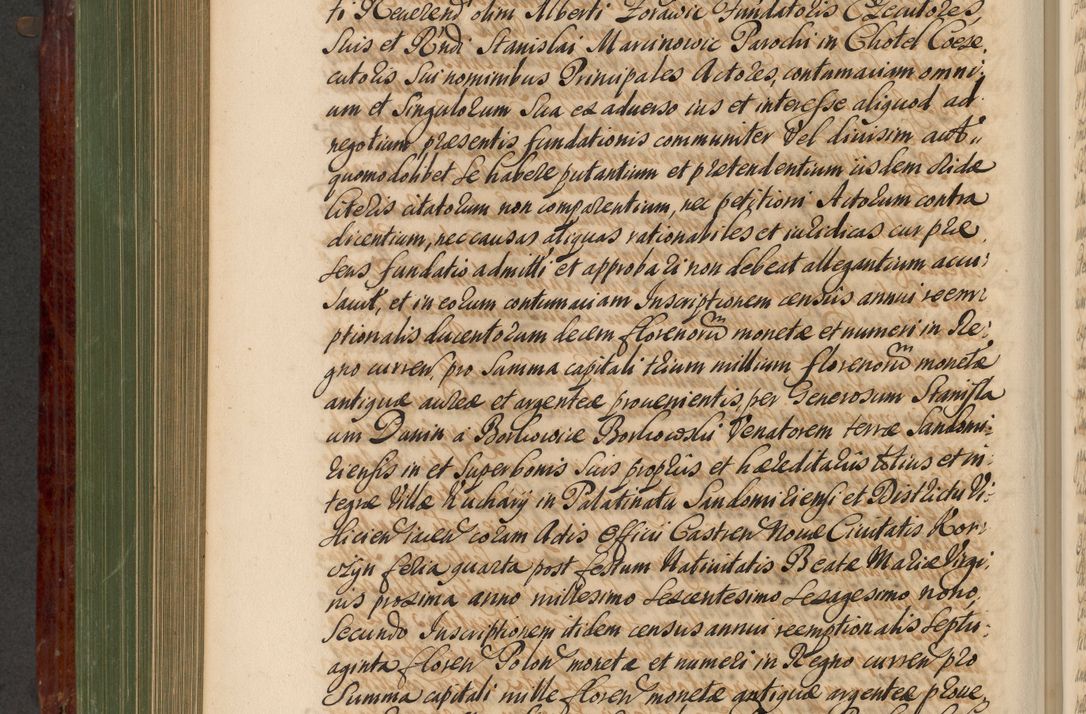 ti Reverend olim Alberti Zorawic Fundatoris Executores
suis et Rndi Stanislai Marcinowic Parochi in Chotel Coexe,
cutoris sui nominibus Principales Actores, contumaciam omni,
um et singulorum sua ex adverso ius et interesse aliquod ad
negotium præsentis fundationis communiter vel divisim aut
quomodolibet se habere putantium et prætendentium iisdem
literis citatorum non comparentium, nec petitioni Actorum contra
dicentium, nec causas aliquas rationabiles et iuridicas cur præ
sens fundatio admitti et approbari non debeat allegantium accu:
savit, et in eorum contumaciam Inscriptionem census annui reem:
ptionalis ducentorum decem florenorum monetæ et numeri in Re:
gno curren, pro summa capitali trium millium florenorum monetæ
antiquæ aureæ et argenteæ provenientis, per Generosum Stanisla
um Danin a Borkowice Borkowski Venatorem terræ Sandomi:
riensis in et super bonis suis propriis et hæreditariis totius et in:
tegræ Villæ Kuchary in Palatinatu Sandomiriensi et Districtu Vi:
slicien iacen coram Actis Officii Castren Novæ Civitatis Kor:
czyn feria quarta post festum Nativitatis Beatæ Mariæ Virgi:
nis proxima anno millesimo sexcentesimo sexagesimo nono,
Secundo Inscriptionem itidem census annui reemptionalis septu:
aginta floren Polon monetæ et numeri in Regno curren pro
Summa capitali mille floren monetæ antiquæ argenteæ prove,